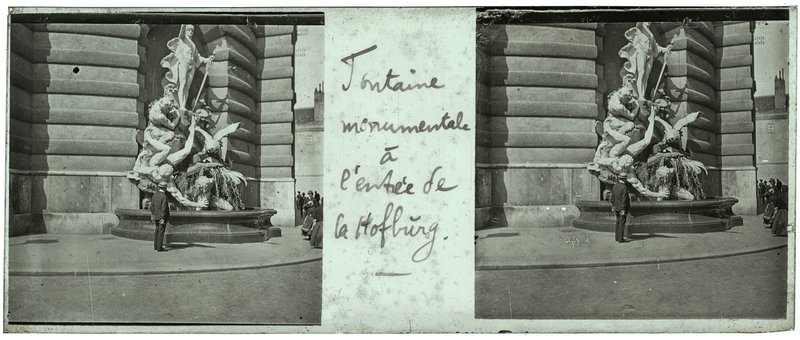 Fontaine
monumentale
à
l'entée de
la Hofbürg.